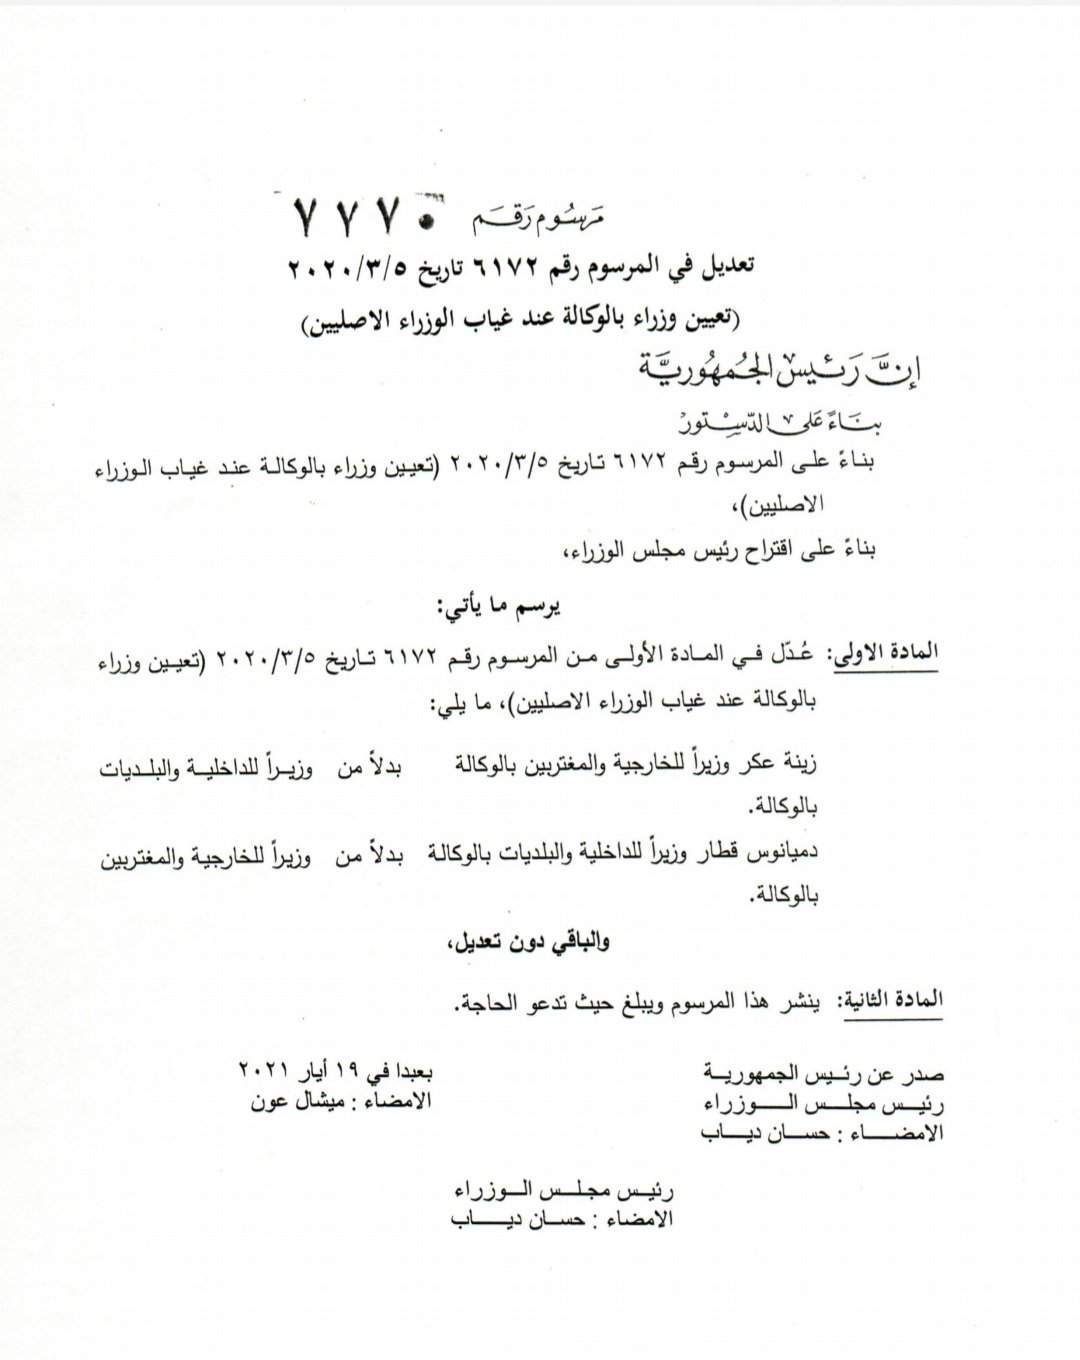 مرسوم رقم ٧٧٧٠
تعديل في المرسوم رقم ٦١٧٢ تاريخ ٢٠٢٠/٣/٥
(تعيين وزراء بالوكالة عند غياب الوزراء الاصليين)
إنَّ رَئيس الجُمهُوريَّة
بنَاءً عَلى الدّسْتور
بناءً على المرسوم رقم ٦١٧٢ تاريخ ٢٠٢٠/٣/٥ (تعيين وزراء بالوكالة عند غياب الوزراء
الاصليين)،
بناءً على اقتراح رئيس مجلس الوزراء،
يرسم ما يأتي:
المادة الاولى: عُدّل في المادة الأولى من المرسوم رقم ٦١٧٢ تاريخ ٢٠٢٠/٣/٥ (تعيين وزراء
بالوكالة عند غياب الوزراء الاصليين)، ما يلي:
زينة عكر وزيراً للخارجية والمغتربين بالوكالة بدلاً من وزيراً للداخلية والبلديات
بالوكالة.
دميانوس قطار وزيراً للداخلية والبلديات بالوكالة بدلاً من وزيراً للخارجية والمغتربين
بالوكالة.
والباقي دون تعديل،
المادة الثانية: ينشر هذا المرسوم ويبلغ حيث تدعو الحاجة.
بعبدا في ١٩ أيار ٢٠٢١
الامضاء : ميشال عون
صدر عن رئيس الجمهورية
رئيس مجلس الوزراء
الامضاء : حسان دياب
رئيس مجلس الوزراء
الامضاء : حسان دياب